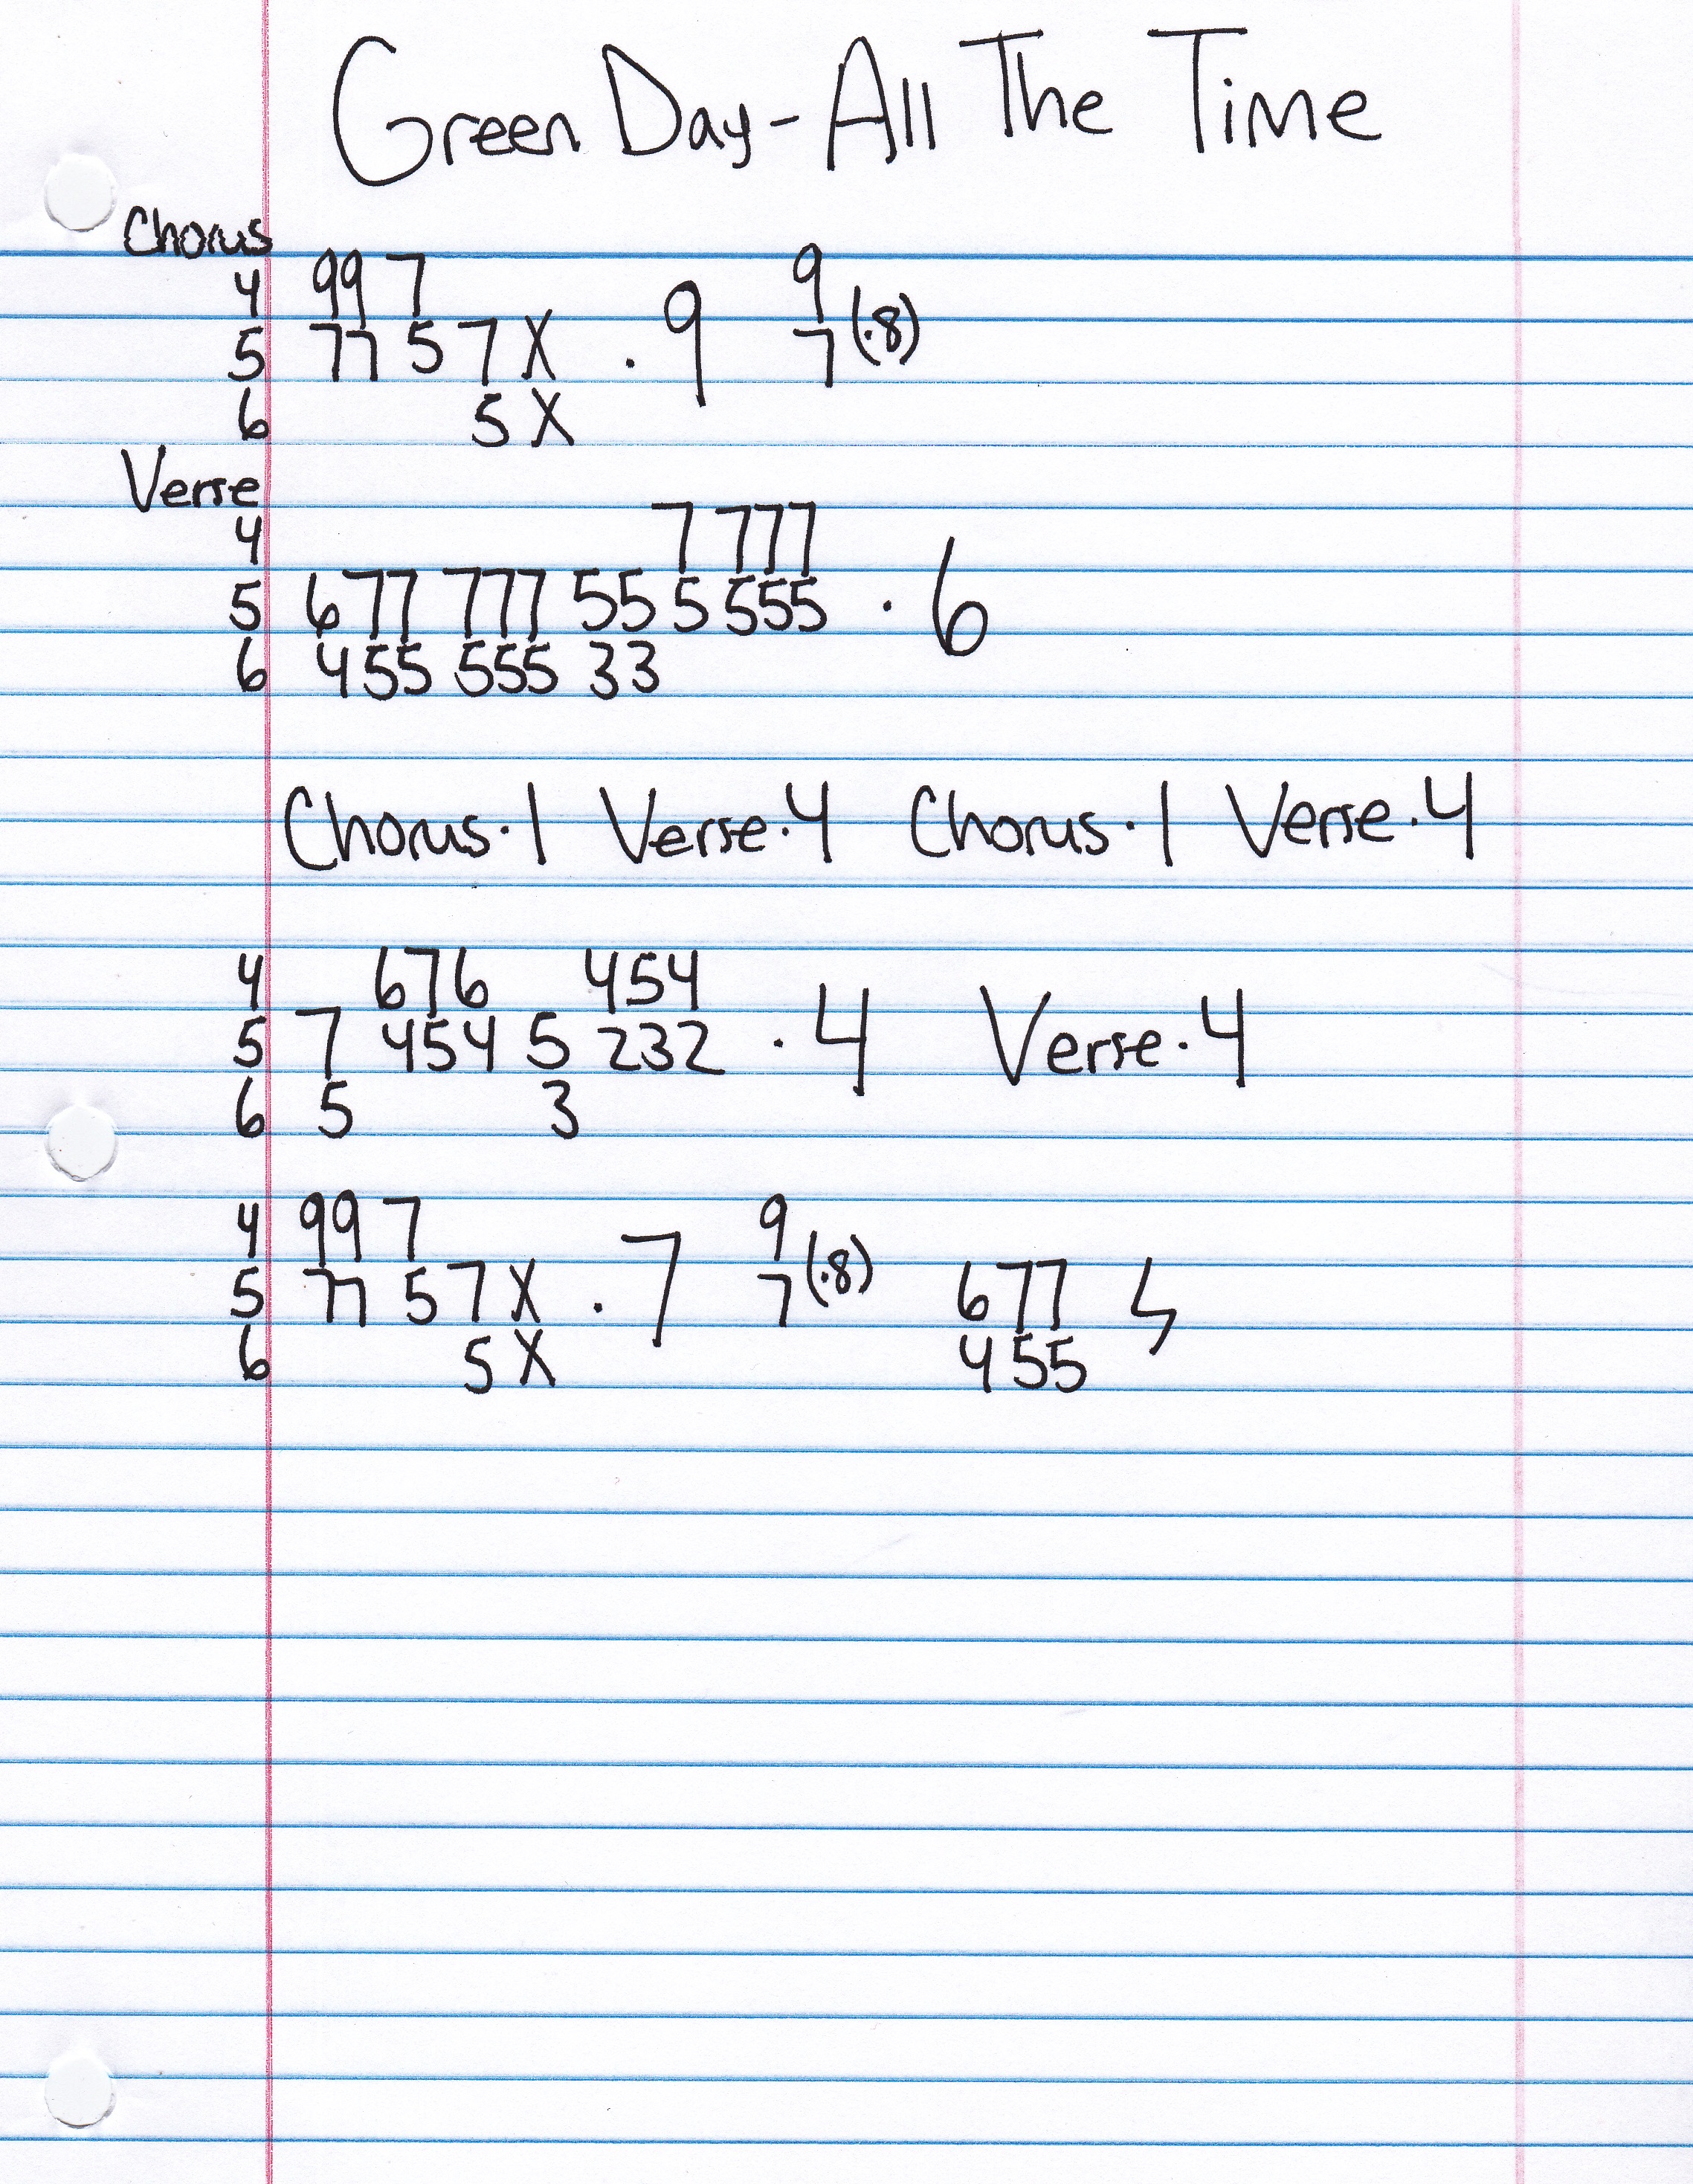 Green Day - All The Time
Chorus
4 99 7 9
5 77 5 7 X . 9 7 (.8)
6 5 X
Verse
4 7 777
5 677 777 55 5 555 . 6
6 455 555 33
Chorus . 1 Verse . 4 Chorus . 1 Verse . 4
4 676 454
5 7 454 5 232 . 4 Verse . 4
6 5 3
4 99 7 9
5 77 5 7 X . 7 7 (.8) 677
6 5 X 455